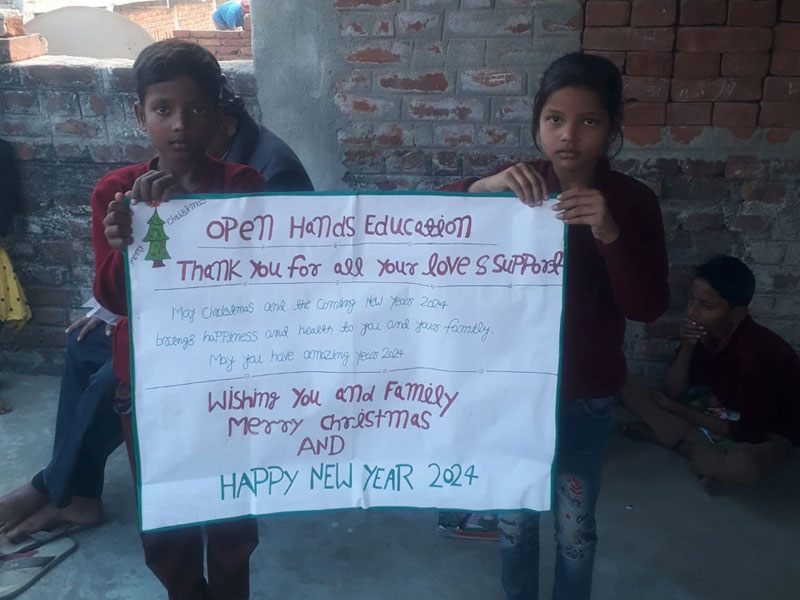 Merry Christmas
Open Hands Education
Thank you for all your love & support
May Christmas and the coming New Year 2024
brings happiness and health to you and your family.
May you have amazing year 2024
Wishing you and family
Merry Christmas
AND
HAPPY NEW YEAR 2024